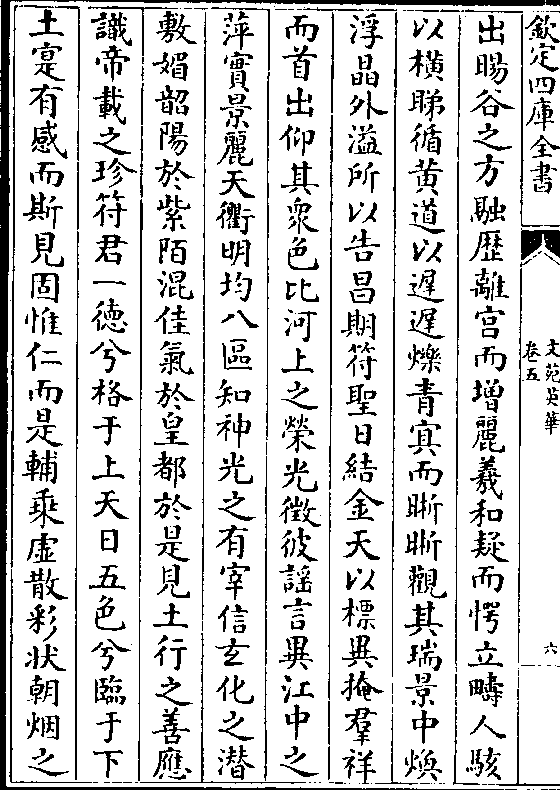 欽定四庫全書
文苑英華
卷五
六
出暘谷之方融歴離宫而增麗羲和疑而愕立疇人駭
以横睇循黄道以遲遲爍青㝠而晣晣觀其瑞景中煥
浮晶外溢所以告昌期符聖日結金天以標異掩羣祥
而首出仰其衆色比河上之榮光徴彼謡言異江中之
萍實景麗天衢明均八區知神光之有宰信玄化之潜
敷媚韶陽於紫陌混佳氣於皇都於是見土行之善應
識帝載之珍符君一德兮格于上天日五色兮臨于下
土寔有感而斯見固惟仁而是輔乘虚散彩狀朝烟之